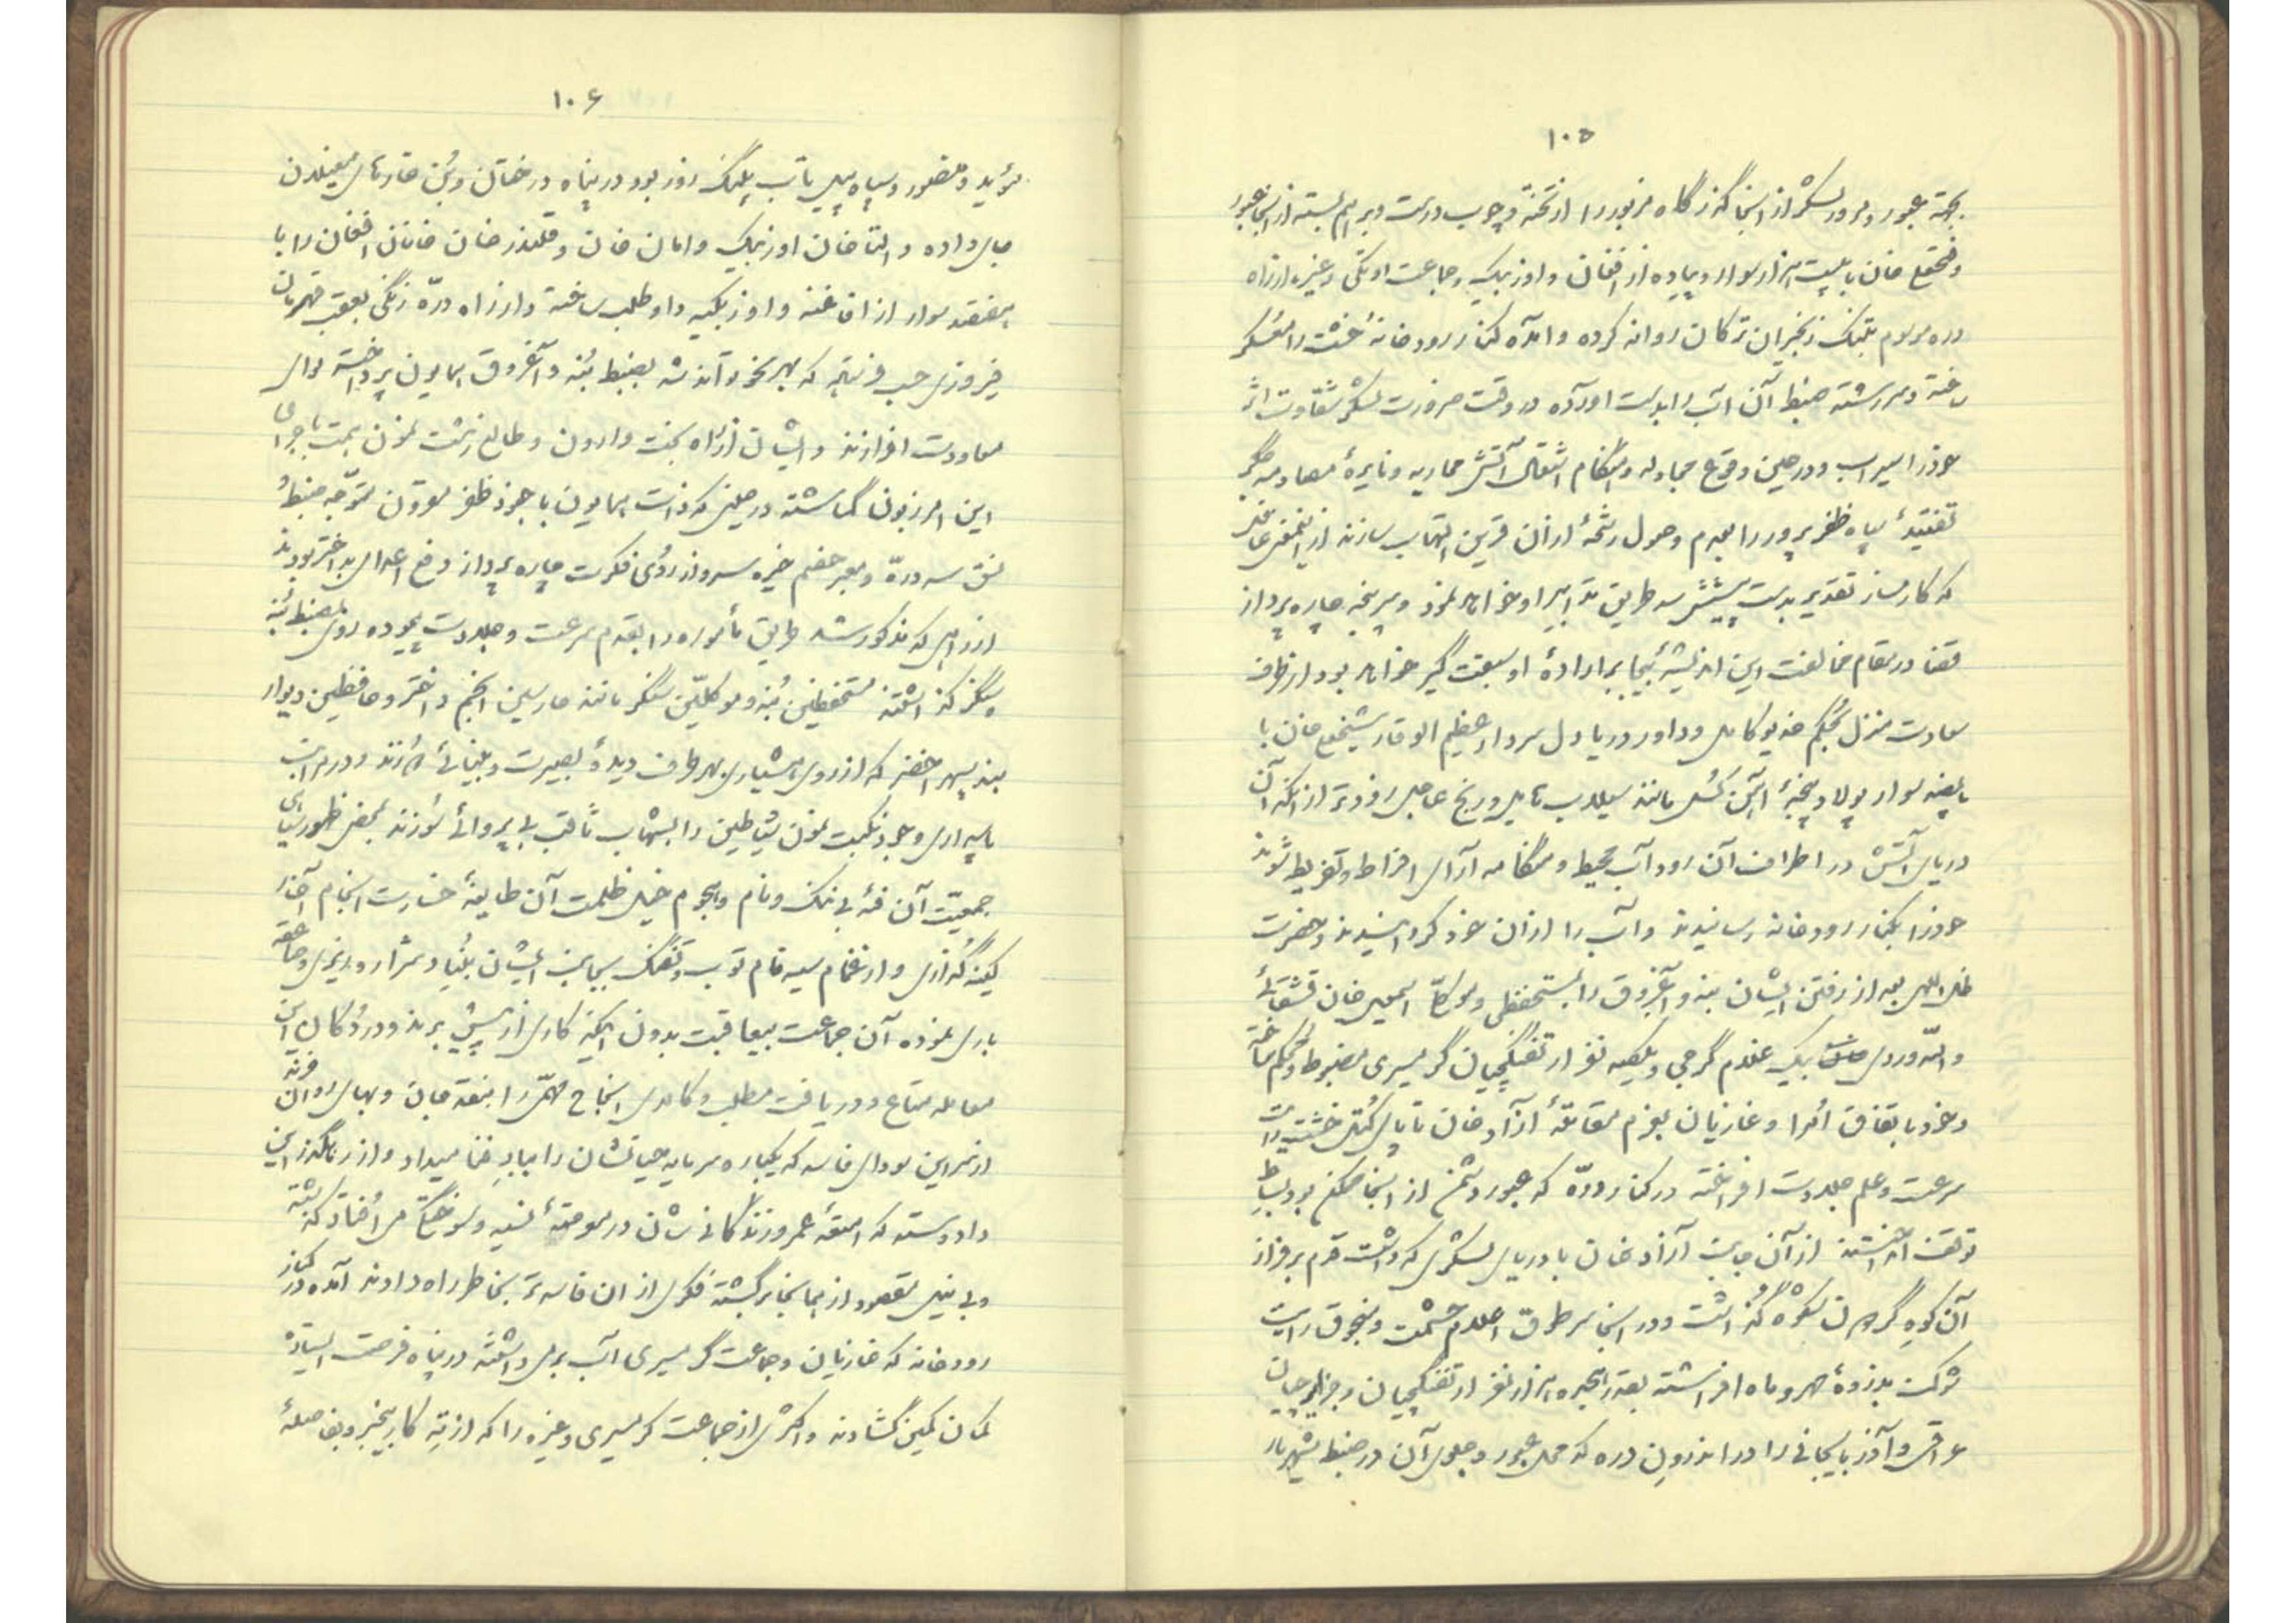 ۱۰۵
بجهة عبور و مرور لشکر از آنجا گذرگاه مزبور را از تخته و چوب درست و برهم بسته از آنجا عبور
و فتحعلی خان با بیست هزار سوار و پیاده از افغان و اوزبیک و جماعت اوتکی و غیره از راه
دره موسوم بتنک زنجیران ترکان روانه کرده و آمده کنار رودخانهٔ خشت را معسکر
ساخته و سررشته ضبط آن آب را بدست آورده در وقت ضرورت لشکر شقاوت اثر
خود را سیراب و در حین وقوع مجادله و هنگام اشتعال آتش محاربه و نایرهٔ مصادمه جگر
تفتیدهٔ سپاه ظفرپرور را بعدم وصول رشحهٔ از آن قرین التهاب سازند از اینمعنی غافل
که کارساز تقدیر بدست پیشتر سد طریق تدابیر او خواهد نمود و سرپنجه چاره پرداز
قضا در مقام مخالفت این اندیشهٔ بیجا بر ارادهٔ او سبقت گیر خواهد بود از طرف
سعادت منزل بحکم خدیو کامل و داور دریا دل سردار عظیم الوقار شیخعلی خان با
پانصد سوار پولاد پنجهٔ آهن گسل مانند سیلاب تا پل و ریخ عاجل زودتر از آنکه آن
دریای آتش در اطراف آن رود آب محیط و هنگامه آرای افراط و تفریط شوند
خود را بکنار رودخانه رسانیدند و آب را از آن خود گردانیدند و حضرت
ظل اللهی بعد از رفتن ایشان بنه و آغروق را بمستحفظی و موکلی اسمعیل خان قشقائی
و الله ویردی بیک غلام گرجی و یکصد نفر از تفنگچیان گرمسیری مضبوط و محکم ساخته
و خود باتفاق امرا و غازیان بعزم مقاتلهٔ آزاد خان تا پای کتل خشت رایت
سرعت و علم جلادت افراخته در کنار دره که عبور دشمن از آنجا ممکن بود بساط
توقف انداختند از آن جانب آزاد خان با دریای لشکری که داشت قدم بر فراز
آن کوه گردون شکوه گذاشت و در آنجا سر طوق اعلام حشمت و منجوق رایت
شوکت بذروهٔ مهر و ماه افراشته بقدر هیجده هزار نفر از تفنگچیان و جزایرچیان
عراقی و آذربایجانی را در اندرون دره که محل عبور و جلوی آن در ضبط شهریار
۱۰۶
مؤید و منصور و سپاه پیل تاب پلنگ روز بود در پناه درختان و بن خارهای مغیلان
جای داده و التا خان اوزبیک و امان خان و قلندر خان خانان افغان را با
هفتصد سوار از افاغنه و اوزبکیه داوطلب ساخته و از راه درهٔ زنگی بعقب قهرمان
فیروزی که بهر نحو توانند شد بضبط بنه و آغروق همایون پرداخته لوای
معاودت افرازند و ایشان از راه بخت وارون و طالع زشت نمون همت باجرای
این امر زبون گماشته در حینی که ذات همایون با جنود ظفر مقرون متوجه ضبط و
نسق سد دره و معبر خصم خیره سر و از روی فکرت چاره پرداز دفع اعدای بداختر بودند
از راهی که مذکور شد طریق مأموره را بقدم سرعت و جلادت پیموده روی بضبط بنه
و سنگر گذاشتند مستحفظین بنه و موکلین سنگر مانند حارسین انجم و اختر و حافظین دیوار
بند سپهر اخضر که از روی هشیاری بهر طرف دیدهٔ بصیرت و بینائی گمارند و در مراتب
پاسداری وجود نکبت نمون شیاطین را بشهاب ثاقب بی پروائی سوزند بمحض ظهور سیاهی
جمعیت آن فئهٔ بی ننگ و نام و هجوم خیل ظلمت آن طایفهٔ خسارت انجام آغاز
کینه گذاری و از غمام سیه فام توپ و تفنگ بجانب ایشان بنیاد شراره ریزی و صاعقه
باری نموده آن جماعت بیعاقبت بدون اینکه کاری از پیش برند و در دکان این
معامله متاع در دریافت مطلب و کالای انجاح مهمی را بنقد جان و بهای روان خرند
از سر این سودای فاسد که یکباره سرمایه حیاتشان را بباد فنا میداد و از رهگذر این
داد و ستد که امتعهٔ عمر و زندگانی شان در معرض نسیه و سوختگی می افتاد گذشته
و بی نیل مقصود از همانجا برگشته فکری از آن فاسدتر بخاطر راه دادند آمده در کنار
رودخانه که غازیان و جماعت گرمسیری آب برمی داشتند در پناه فرصت ایستاده
کمان کمین گشادند و اکثری از جماعت گرمسیری و غیره را که از ته کار بیخبر و بفاصلهٔ